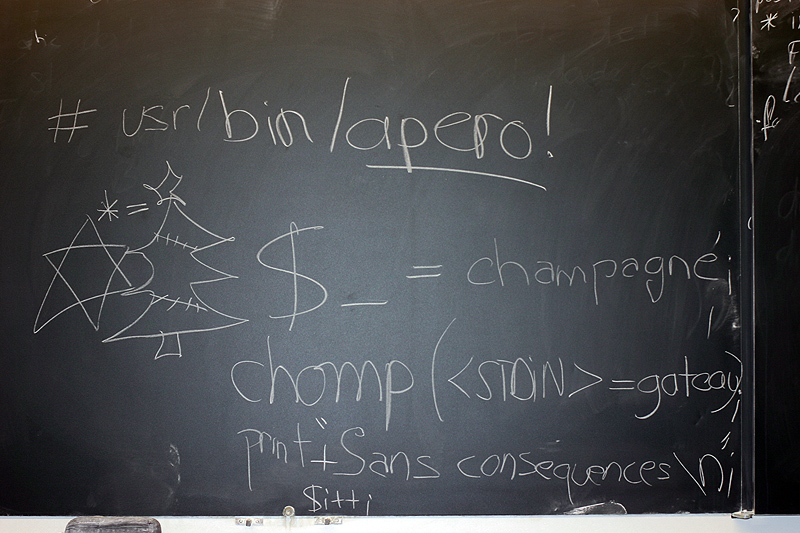 # usr/bin/apero!
*=
$_ = champagné;
chomp(<STDIN>=gateau);
print "Sans consequences\n";
$i++;